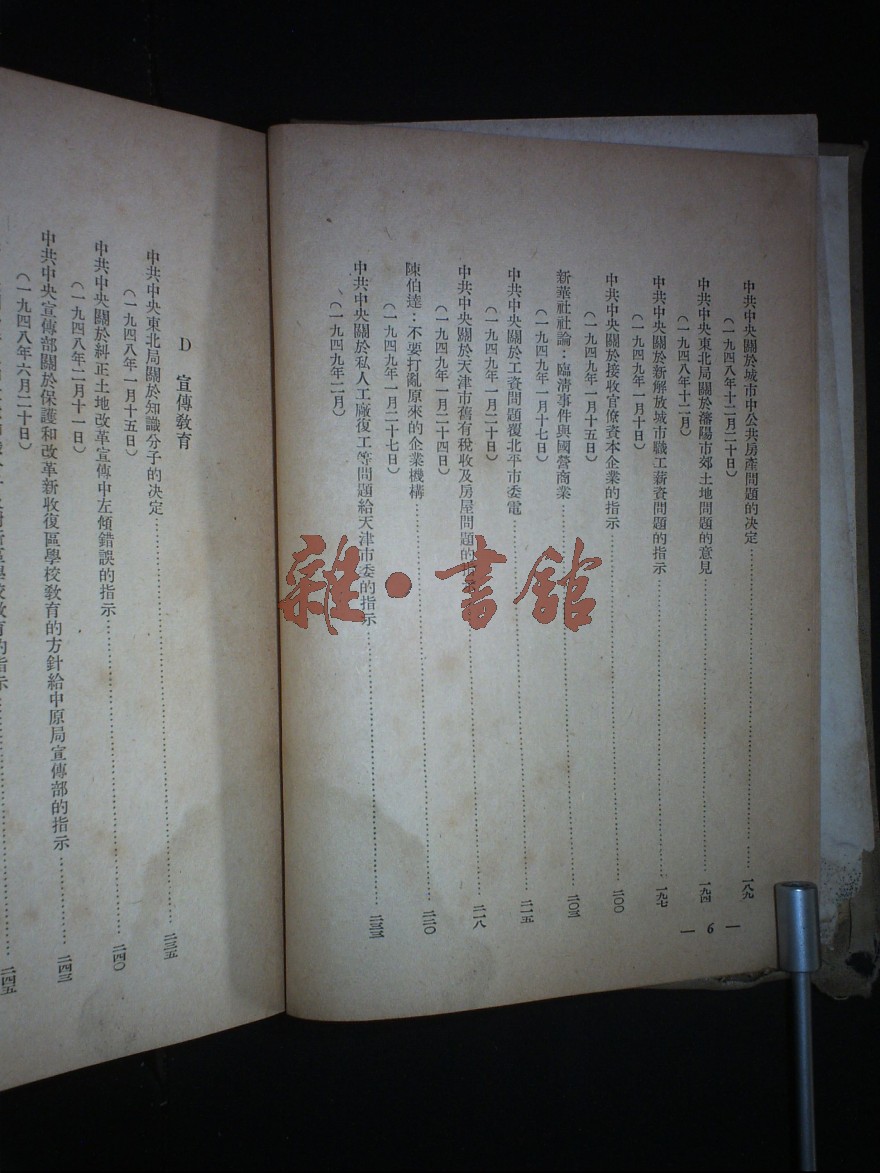 中共中央關於城市中公共房產問題的决定……一八九
(一九四八年十二月二十日)
中共中央東北局關於瀋陽市郊土地問題的意見……一九四
(一九四八年十二月)
中共中央關於新解放城市職工薪資問題的指示……一九七
(一九四九年一月十日)
中共中央關於接收官僚資本企業的指示……二〇〇
(一九四九年一月十五日)
新華社社論：臨清事件與國營商業……二〇三
(一九四九年一月十七日)
中共中央關於工資問題覆北平市委電……二一五
(一九四九年一月二十日)
中共中央關於天津市舊有稅收及房屋問題的……二一八
(一九四九年一月二十四日)
陳伯達：不要打亂原來的企業機構……二二〇
(一九四九年一月二十七日)
中共中央關於私人工廠復工等問題給天津市委的指示……二三三
(一九四九年二月)
— 6 —
D 宣傳教育
中共中央東北局關於知識分子的决定……二三五
(一九四八年一月十五日)
中共中央關於糾正土地改革宣傳中左傾錯誤的指示……二四〇
(一九四八年二月十一日)
中共中央宣傳部關於保護和改革新收復區學校敎育的方針給中原局宣傳部的指示……二四三
(一九四八年六月二十日)
學校教育的指示……二四五
雜·書館